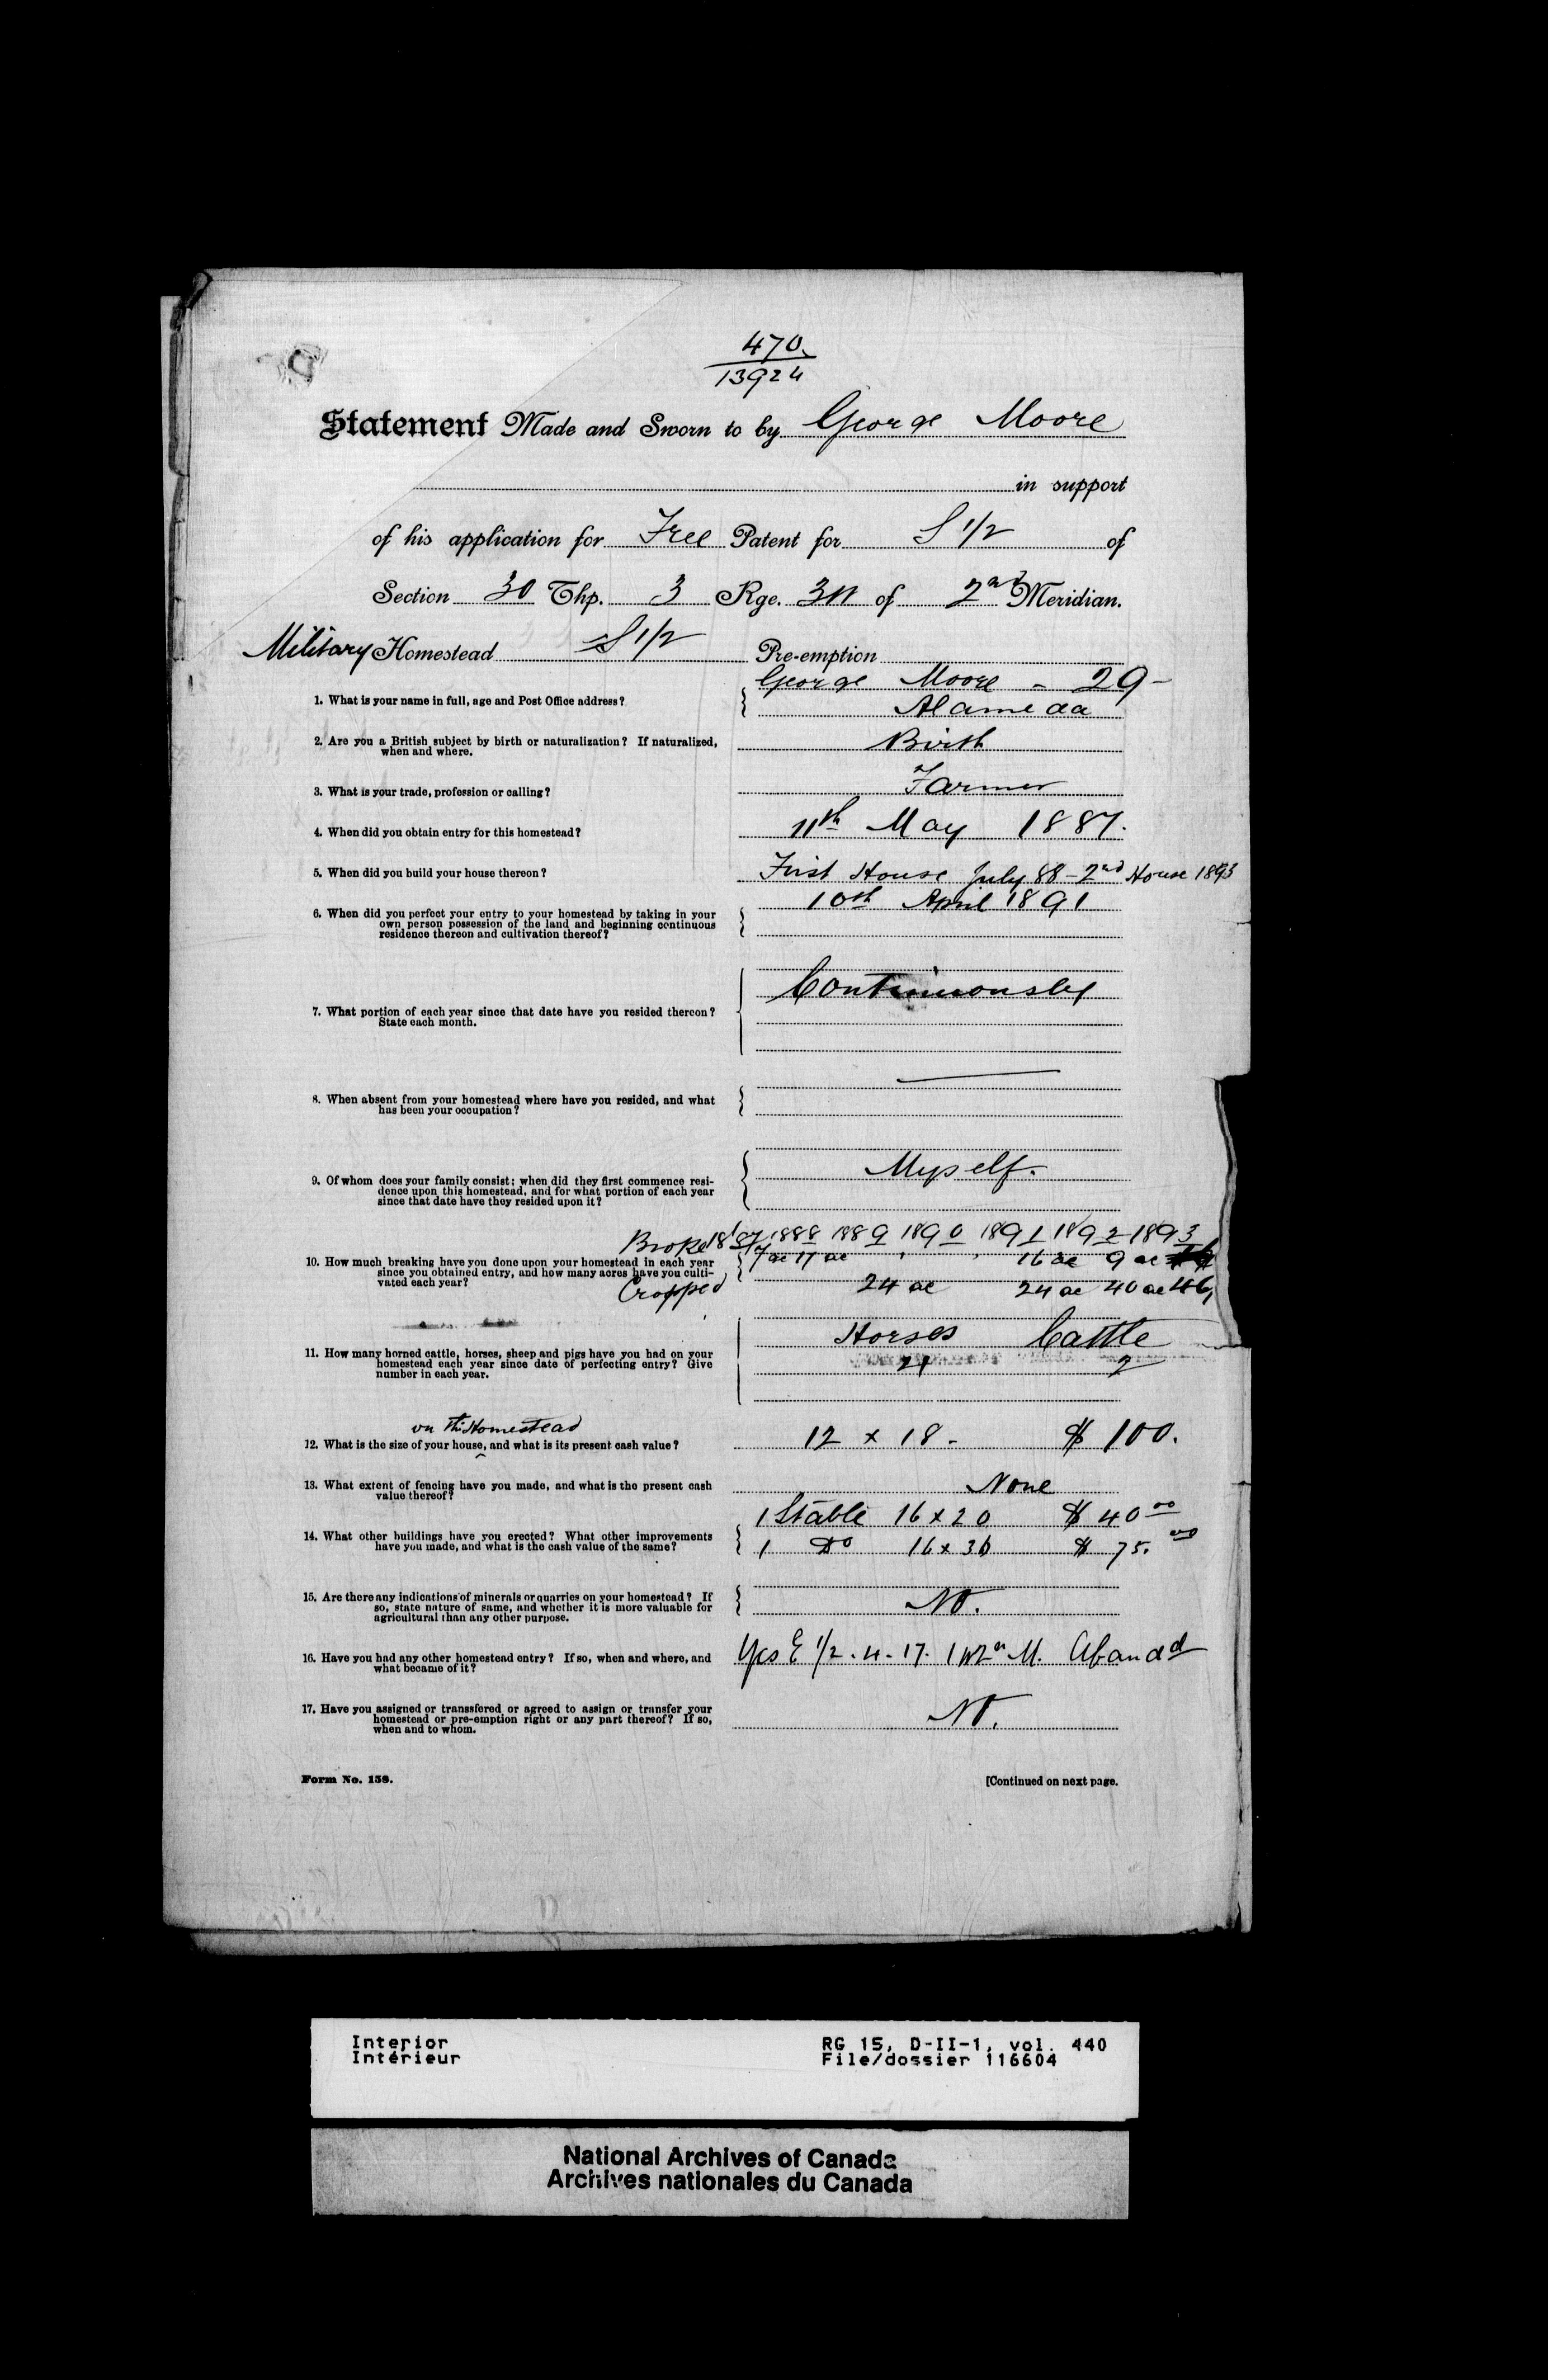 470.
13924
Statement Made and Sworn to by George Moore
in support
of his application for Free Patent for S 1/2 of
Section 30 Thp. 3 Rge. 3 of 2nd Meridian.
Military Homestead S 1/2 Pre-emption
George Moore - 29 -
1. What is your name in full, age and Post Office address?
Alameda
2. Are you a British subject by birth or naturalization? If naturalized,
when and where.
Birth
3. What is your trade, profession or calling?
Farmer
4. When did you obtain entry for this homestead?
11th May 1887.
5. When did you build your house thereon?
First House July 88 - 2nd House 1893
6. When did you perfect your entry to your homestead by taking in your
own person possession of the land and beginning continuous
residence thereon and cultivation thereof?
10th April 1891
7. What portion of each year since that date have you resided thereon?
State each month.
Continuously
8. When absent from your homestead where have you resided, and what
has been your occupation?
9. Of whom does your family consist; when did they first commence resi-
dence upon this homestead, and for what portion of each year
since that date have they resided upon it?
Myself.
Broke 1887 1888 1889 1890 1891 1892 1893
7 ac 17 ac 16 ac 9 ac
10. How much breaking have you done upon your homestead in each year
since you obtained entry, and how many acres have you culti-
vated each year?
Cropped 24 ac 24 ac 40 ac 46
Horses Cattle
11. How many horned cattle, horses, sheep and pigs have you had on your
homestead each year since date of perfecting entry? Give
number in each year.
2
on the Homestead
12. What is the size of your house, and what is its present cash value?
12 x 18 - $ 100.
13. What extent of fencing have you made, and what is the present cash
value thereof?
None
1 Stable 16 x 20 $ 40 00
14. What other buildings have you erected? What other improvements
have you made, and what is the cash value of the same?
1 Do 16 x 30 $ 75. 00
15. Are there any indications of minerals or quarries on your homestead? If
so, state nature of same, and whether it is more valuable for
agricultural than any other purpose.
No.
16. Have you had any other homestead entry? If so, when and where, and
what became of it?
Yes E 1/2 . 4 - 17. 1 M. Aband d
17. Have you assigned or transsfered or agreed to assign or transfer your
homestead or pre-emption right or any part thereof? If so,
when and to whom.
No.
Form No. 158.
[Continued on next page.
Interior RG 15, D-II-1, vol. 440
Intérieur File/dossier 116604
National Archives of Canada
Archives nationales du Canada